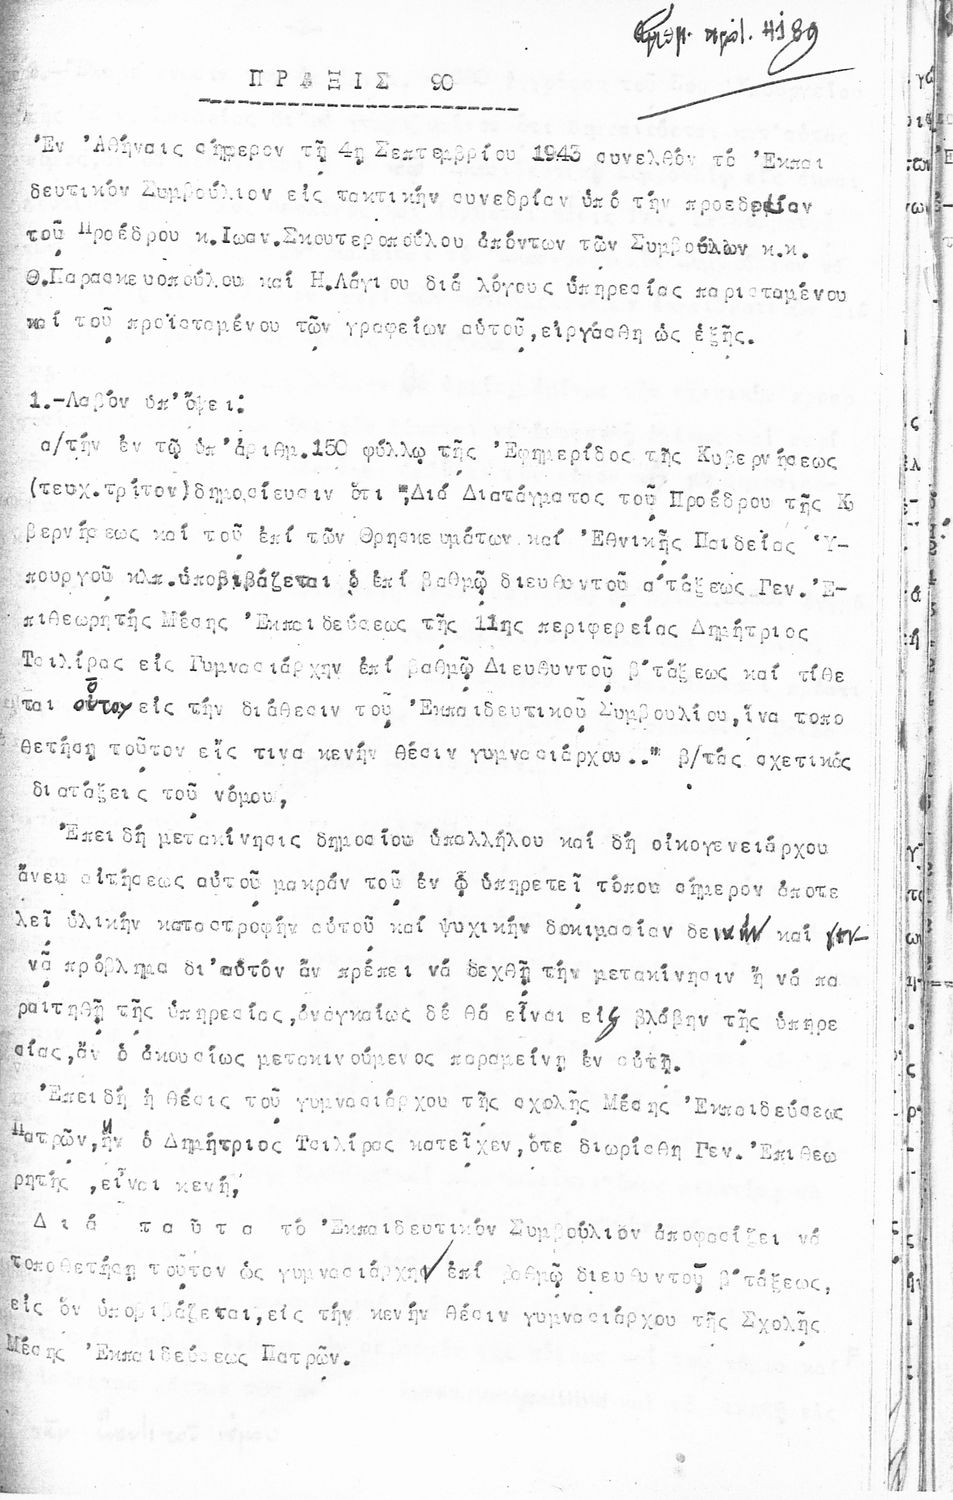 Ἀριθμ. πρωτ. 4189
ΠΡΑΞΙΣ 90
Ἐν Ἀθήναις σήμερον τῇ 4ῃ Σεπτεμβρίου 1943 συνελθόν τό Ἐκπαι
δευτικόν Συμβούλιον εἰς τακτικήν συνεδρίαν ὑπό τήν προεδρείαν
τοῦ Προέδρου κ.Ιωαν.Σκουτεροπούλου ἀπόντων τῶν Συμβούλων κ.κ.
Θ.Παρασκευοπούλου καί Η.Λάγιου διά λόγους ὑπηρεσίας παρισταμένου
καί τοῦ προϊσταμένου τῶν γραφείων αὐτοῦ,εἰργάσθη ὡς ἑξῆς.
1.-Λαβόν ὑπ'ὄψει:
α/τήν ἐν τῷ ὑπ'ἀριθμ.150 φύλλῳ τῆς Ἐφημερίδος τῆς Κυβερνήσεως
(τευχ.τρίτον)δημοσίευσιν ὅτι "Διά Διατάγματος του Προέδρου τῆς Κυ
βερνήσεως καί τοῦ ἐπί τῶν Θρησκευμάτων καί Ἐθνικῆς Παιδείας Ὑ-
πουργοῦ κλπ.ὑποβιβάζεται ὁ ἐπί βαθμῷ διευθυντοῦ α΄τάξεως Γεν.Ἐ-
πιθεωρητής Μέσης Ἐκπαιδεύσεως τῆς 11ης περιφερείας Δημήτριος
Τσιλίρας εἰς Γυμνασιάρχην ἐπί βαθμῷ Διευθυντοῦ β΄τάξεως καί τίθε
ται οὗτος εἰς τήν διάθεσιν τοῦ Ἐκπαιδευτικοῦ Συμβουλίου,ἵνα τοπο
θετήσῃ τοῦτον εἴς τινα κενήν θέσιν γυμνασιάρχου.." β/τάς σχετικάς
διατάξεις τοῦ νόμου,
Ἐπειδή μετακίνησις δημοσίου ὑπαλλήλου καί δή οἰκογενειάρχου
ἄνευ αἰτήσεως αὐτοῦ μακράν τοῦ ἐν ᾧ ὑπηρετεῖ τόπου σήμερον ἀποτε
λεῖ ὑλικήν καταστροφήν αὐτοῦ καί ψυχικήν δοκιμασίαν δεινήν καί γεν-
νᾷ πρόβλημα δι'αὐτόν ἄν πρέπει νά δεχθῇ τήν μετακίνησιν ἤ νά πα
ραιτηθῇ τῆς ὑπηρεσίας,ἀναγκαίως δέ θά εἶναι εἰς βλάβην τῆς ὑπηρε
σίας,ἄν ὁ ἀκουσίως μετακινούμενος παραμείνῃ ἐν αὐτῇ.
Ἐπειδή ἡ θέσις τοῦ γυμνασιάρχου τῆς σχολῆς Μέσης Ἐκπαιδεύσεως
Πατρῶν,ἥν ὁ Δημήτριος Τσιλίρας κατεῖχεν,ὅτε διωρίσθη Γεν.Ἐπιθεω
ρητής ,εἶναι κενή,
Διά ταῦτα τό Ἐκπαιδευτικόν Συμβούλιον ἀποφασίζει νά
τοποθετήσῃ τοῦτον ὡς γυμνασιάρχην ἐπί βαθμῷ διευθυντοῦ β΄τάξεως,
εἰς ὅν ὑποβιβάζεται,εἰς τήν κενήν θέσιν γυμνασιάρχου τῆς Σχολῆς
Μέσης Ἐκπαιδεύσεως Πατρῶν.